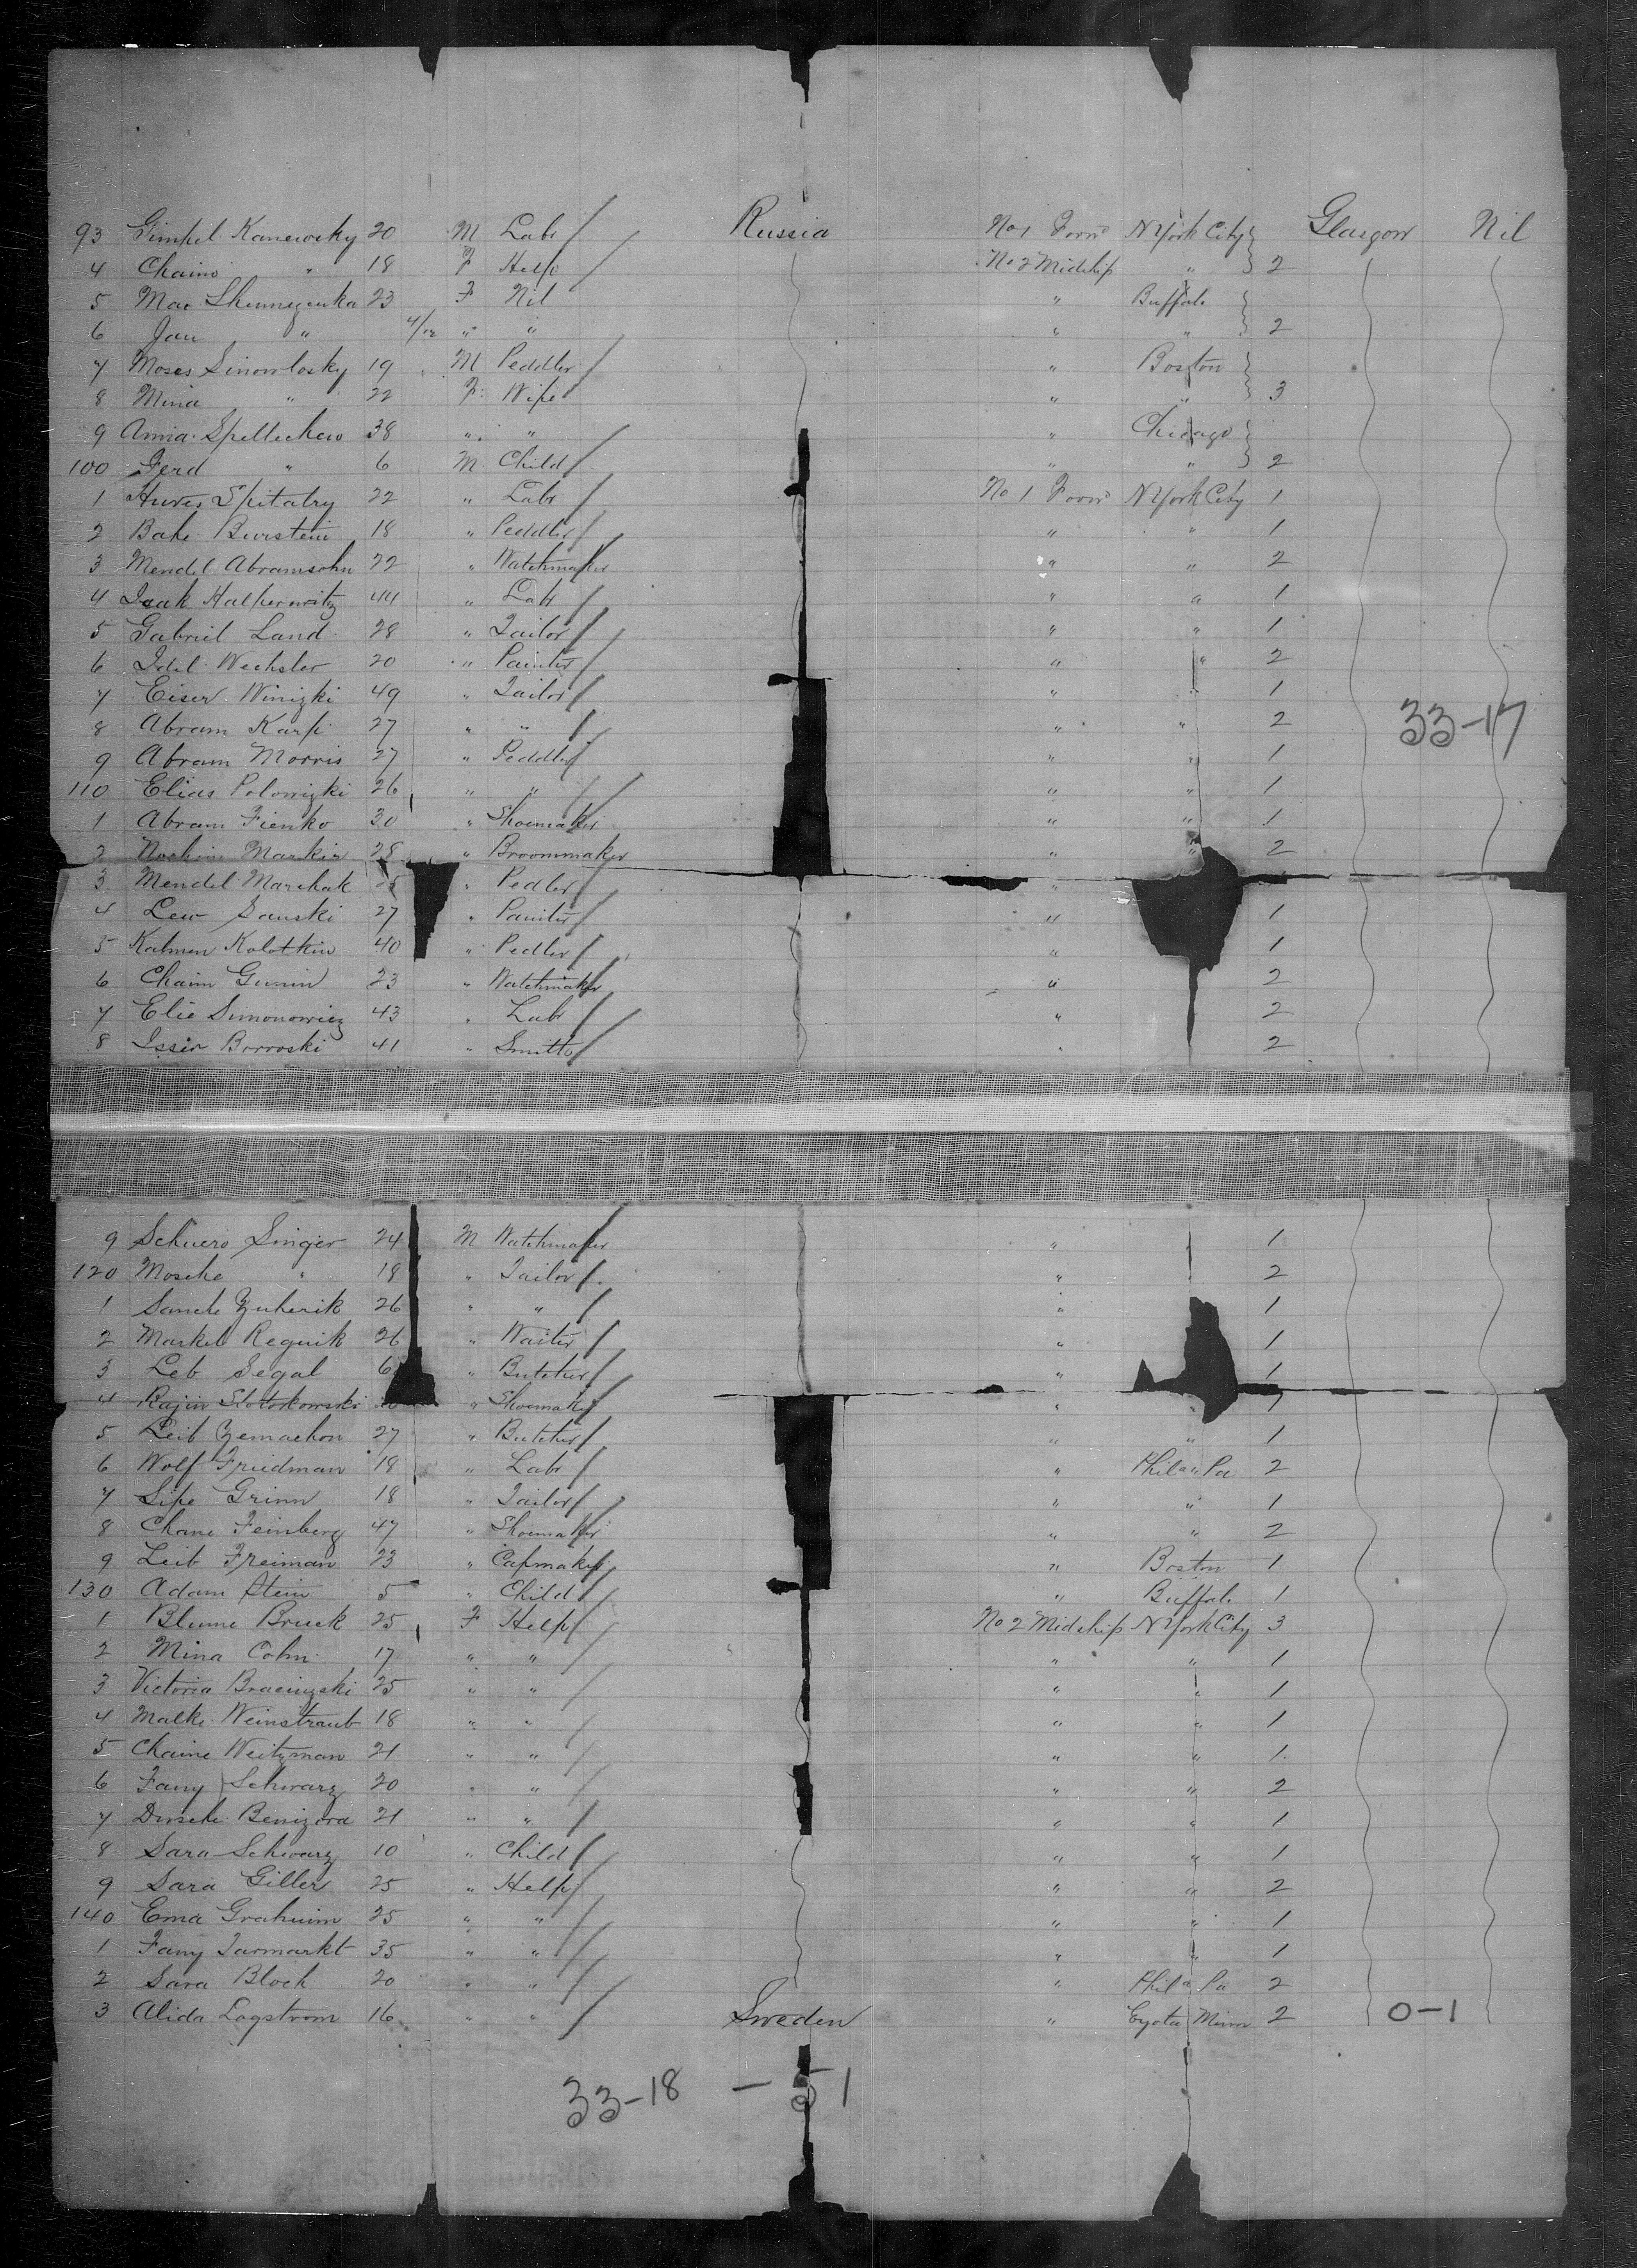 93 Gimpel Kanewsky 20 M Labr Russia No 1 Forwd N York City Glasgow Nil
4 Chaino " 18 F Help No 2 Midship " 2
5 Mae 23 F Nil " Buffalo
6 Jan " 4/12 " " " " 2
7 Moses Sinowlosky 19 M Peddler " Boston
8 Mina " 22 F Wife " " 3
9 Anna Spellechew 38 " " " Chicago
100 Ferd " 6 M Child " " 2
1 Spitalry 22 " Labr No 1 Forwd N York City 1
2 Bake Burstein 18 " Peddler " " 1
3 Mendel Abramsohn 22 " Watchmaker " " 2
4 Isak Halperowitz 44 " Labr " " 1
5 Gabriel Land 28 " Tailor " " 1
6 Idel Wechsler 20 " Painter " " 2
7 Eiser Winizki 49 " Tailor " " 1
8 Abram Karp 27 " " " " 2
33-17
9 Abram Morris 27 " Peddler " " 1
110 Elias Polowizki 26 " " " " 1
1 Abram Fienko 30 " Shoemaker " " 1
2 Markir 28 " Broommaker " " 2
3 Mendel Marchak " Pedler "
4 Lew Sanski 27 " Painter " 1
5 Kalmen Kolotkin 40 " Pedler " 1
6 Chaim Gunin 23 " Watchmaker " 2
7 Elie Simonowicz 43 " Labr " 2
8 Issir Borroski 41 " Smith " 2
9 Singer 24 M Watchmaker " 1
120 Mosche " 18 " Tailor " 2
1 Sanche Zuherik 26 " " " 1
2 Markel Regnik 26 " Waiter " 1
3 Leb Segal " Butcher " 1
4 Rajin Slotorkowski " Shoemaker "
5 Leib Zemachon 27 " Butcher " " 1
6 Wolf Friedman 18 " Labr " Phila Pa 2
7 Sipe Grinn 18 " Tailor " " 1
8 Chane Feinberg 47 " Shoemaker " " 2
9 Leib Freiman 23 " Capmaker " Boston 1
130 Adam Stein 5 " Child " Buffalo 1
1 Blume Bruck 25 F Help No 2 Midship N York City 3
2 Mina Cohn 17 " " " " 1
3 Victoria Bracinzski 25 " " " " 1
4 Malke Weinstraub 18 " " " " 1
5 Chaine Weitzman 21 " " " " 1
6 Fany Schwarz 20 " " " " 2
7 Dwsche Benizora 21 " " " " 1
8 Sara Schwarz 10 " Child " " 1
9 Sara Giller 25 " Help " " 2
140 Ema Grahuim 25 " " " " 1
1 Fany Jarmarkt 35 " " " " 1
2 Sara Bloch 20 " " " Phila Pa 2
3 Alida Lagstrom 16 " " Sweden " Eyota Minn 2 0-1
33-18 - 51